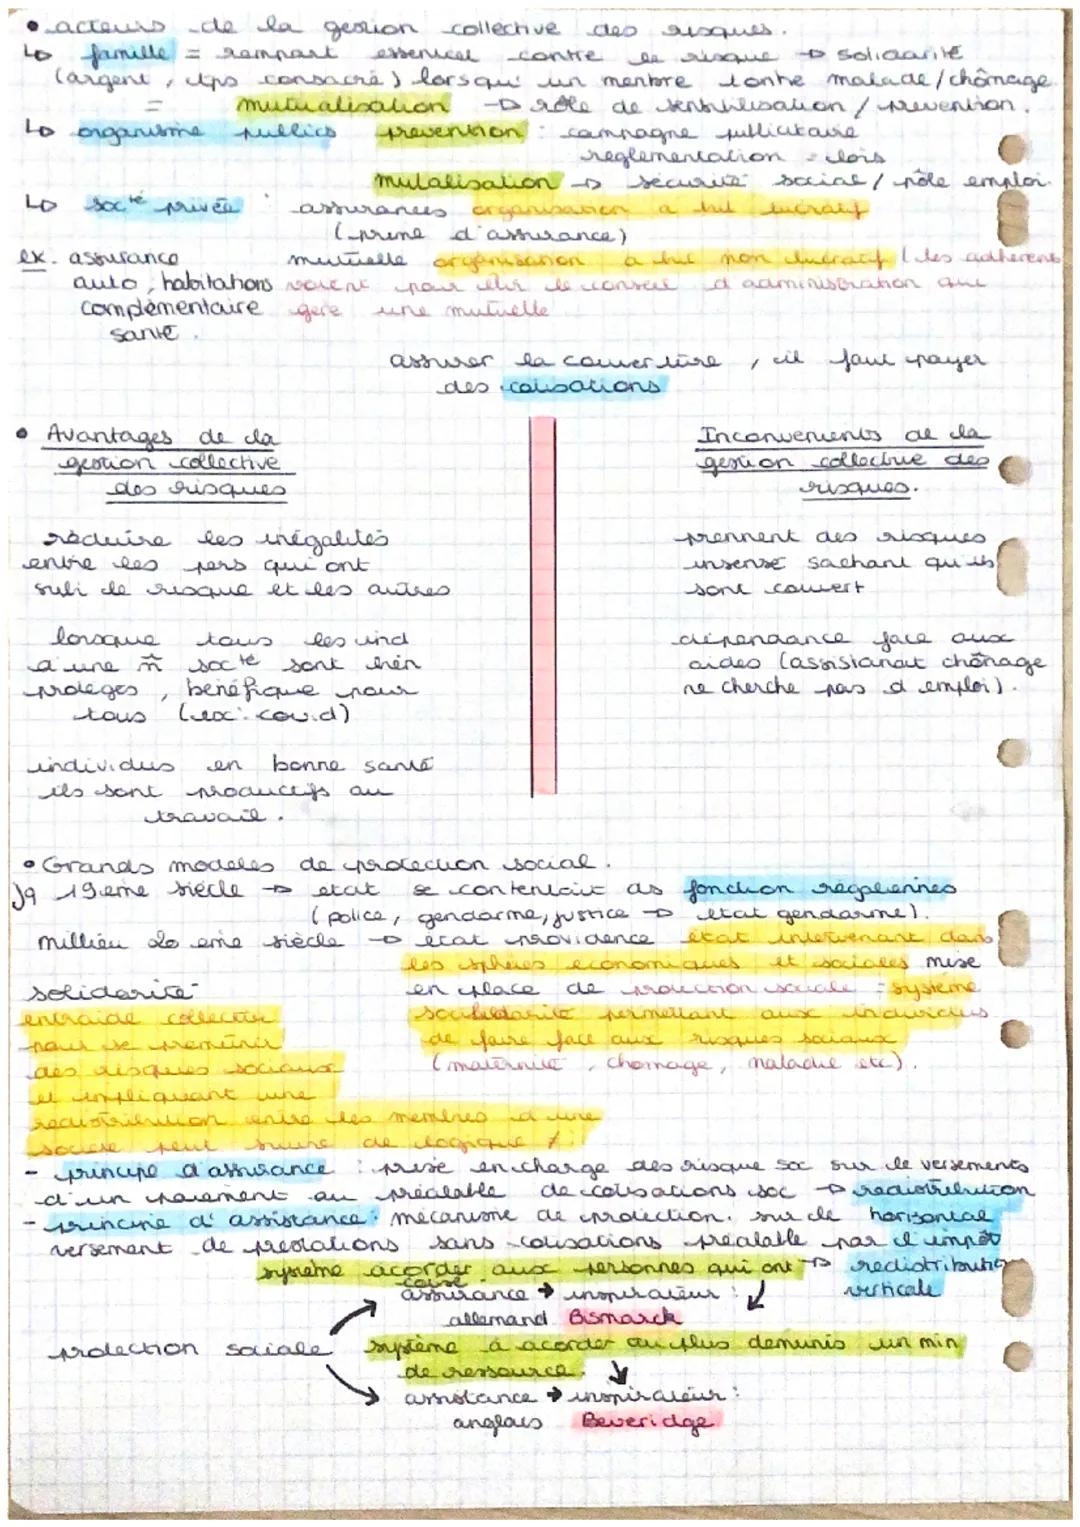 • acteurs de la gestion collective des risques.
↳ famille = rempart essentiel contre le risque → solidarité
(argent, tps consacré) lorsqu' un membre tombe malade/chômage
= mutualisation → rôle de sensibilisation / prévention.
↳ organisme publics prevention : campagne publicitaire
reglementation = lois
mutalisation → sécurité social / pôle emploi.
↳ socté privée : assurances organisation a but lucratif
(prime d'assurance)
ex. assurance mutuelle organisation a but non lucratif (les adherents
auto, habitations votent pour élir le conseil d'administration qui
complémentaire gere une mutuelle
santé.
assurer la couverture, il faut payer
des cotisations
• Avantages de la
gestion collective
des risques
Inconvenients de la
gestion collective des
risques.
réduire les inégalités
entre les pers qui ont
subi le risque et les autres
prennent des risques
insensé sachant qu'ils
sont couvert
lorsque tous les ind
d'une m̃ socté sont bien
protéges, bénéfique pour
tous (ex: covid)
dépendance face aux
aides (assistanat chômage
ne cherche pas d'emploi).
individus en bonne santé
ils sont productifs au
travail.
• Grands modeles de protection social.
Jq 19eme siècle → etat se contentait as fonction régaliennes
(police, gendarme, justice → etat gendarme).
millieu 20 eme siècle → etat providence etat intervenant dans
les sphères economiques et sociales mise
en place de protection sociale = système
solidarité permettant aux individus
de faire face aux risques sociaux
(maternité, chomage, maladie etc).
solidarité
entraide collective
pour se prémunir
des risques sociaux
et impliquant une
redistribution entre les membres d'une
société peut suivre de logique ≠ :
- principe d'assurance : prise en charge des risque soc sur le versements
d'un paiement au préalable de cotisations soc → redistribution
horizontal
- principe d'assistance : mécanisme de protection. sur le
versement de prestations sans cotisations préalable par l'impôt
→ redistribution
verticale
système acorder aux personnes qui ont
cotisé.
assurance → inspirateur :
allemand Bismarck
protection sociale
système à acorder au plus demunis un min
de ressource.
assistance → inspirateur :
anglais Beveridge